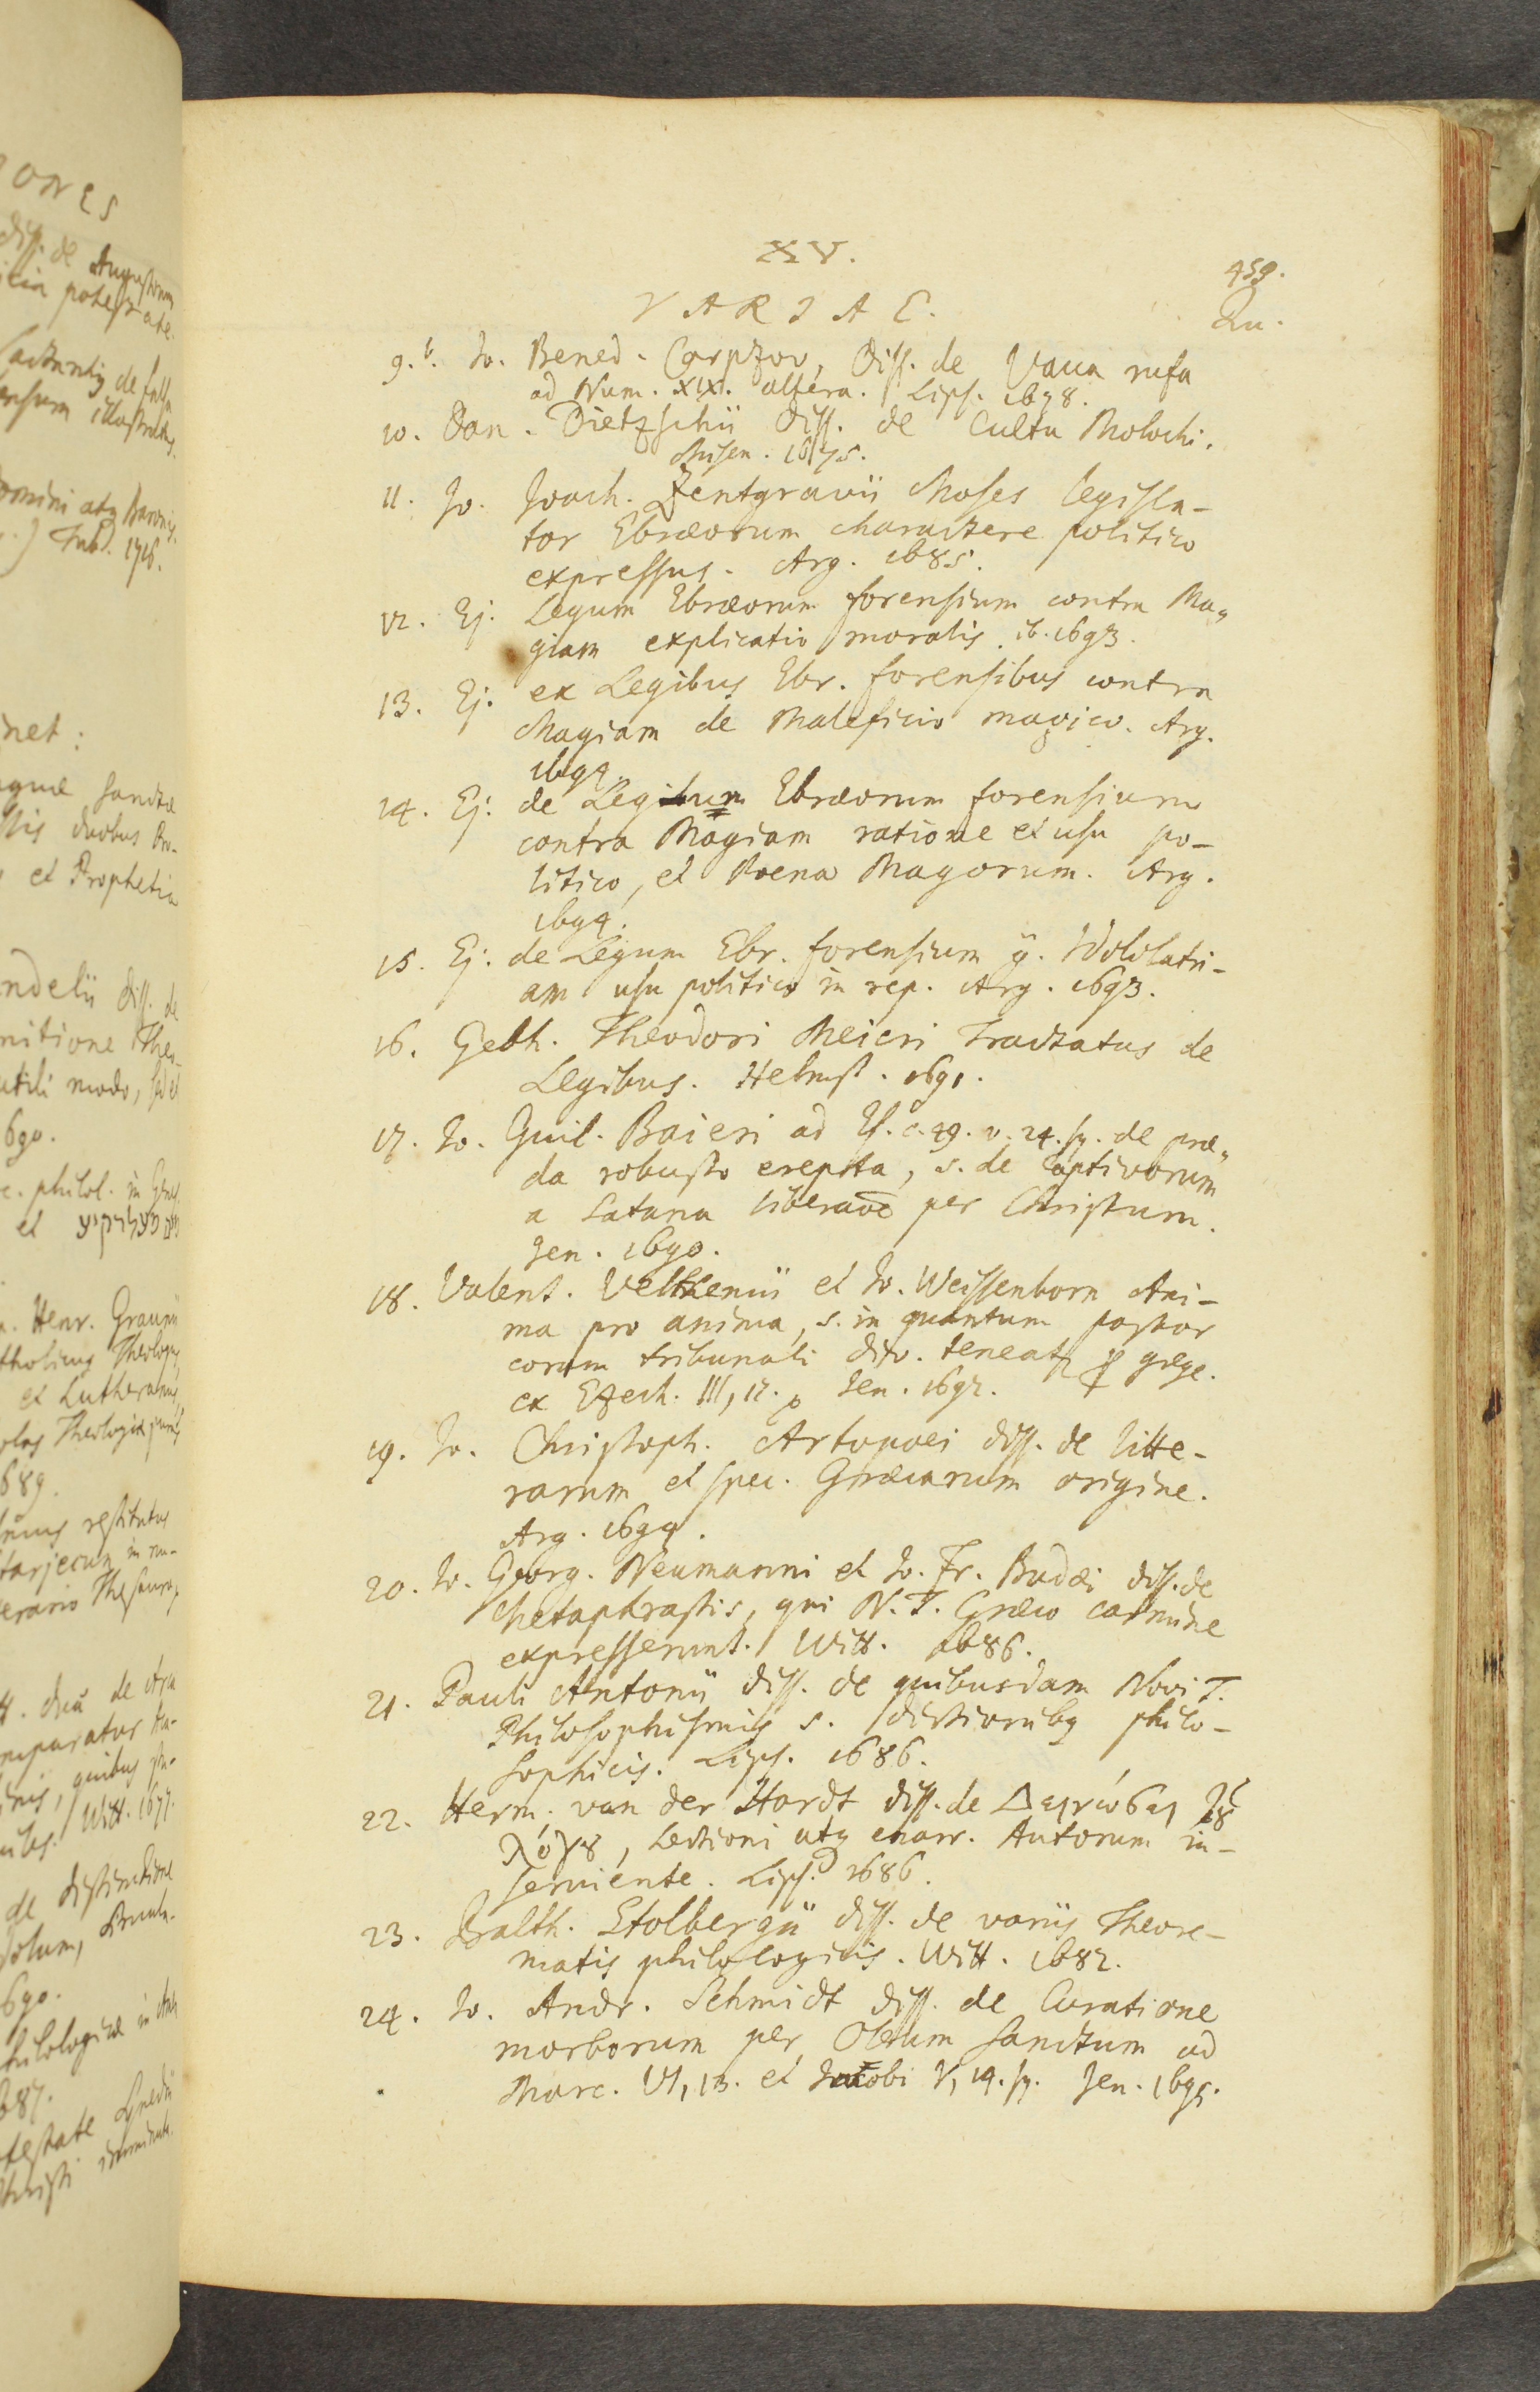 XV.
459.
VARIAE.
Qu.
9.b. Jo. Bened. Carpzov, Diss. de Vacca rufa
ad Num. XIX. altera. Lips. 1678.
10. Dan. Dietzschii diss. de Cultu Molochi.
Misen. 1675.
11. Jo. Joach. Zentgravii Moses legisla-
tor Ebræorum charactere politico
expressus. Arg. 1685.
12. Ej. Legum Ebræorum forensium contra Ma-
giam explicatio moralis. ib. 1693.
13. Ej. ex Legibus Ebr. forensibus contra
Magiam de Maleficio magico. Arg.
1694.
14. Ej. de Legum Ebræorum forensium
contra Magiam ratione et usu po-
litico, et Poena Magorum. Arg.
1694.
15. Ej. de Legum Ebr. forensium Idololatri-
am usu politico in rep. Arg. 1693.
16. Gebh. Theodori Meieri Tractatus de
Legibus. Helmst. 1691.
17. Jo. Guil. Baieri ad Es. c. 49. v. 24. sq. de præ-
da robusto erepta, s. de Captivorum
a Satana liberaōe per Christum.
Jen. 1690.
18. Valent. Velthenii et Jo. Weissenborn Ani-
ma pro anima, s. in quantum pastor
coram tribunali divo. teneatr grege.
ex Ezech. III, 17. Jen. 1692.
19. Jo. Christoph. Artopoei diss. de litte-
rarum et spec. Græcarum origine.
Arg. 1694.
20. Jo. Georg. Neumanni et Jo. Fr. Budæi diss. de
Metaphrastis, qui N. T. Græco carmine
expresserunt. Witt. 1686.
21. Pauli Antonii diss. de quibusdam Novi T.
Philosophismis s. dictionibq philo-
sophicis. Lips. 1686.
22. Herm. van der Hardt diss. de
λόγȣ, Lectioni atq enarr. Autorum in-
serviente. Lips. 1686.
23. Balth. Stolbergii diss. de variis Theore-
matis philologicis. Witt. 1682.
24. Jo. Andr. Schmidt diss. de Curatione
morborum per Oleum sanctum ad
Marc. VI, 13. et Jacobi V, 14. sq. Jen. 1695.